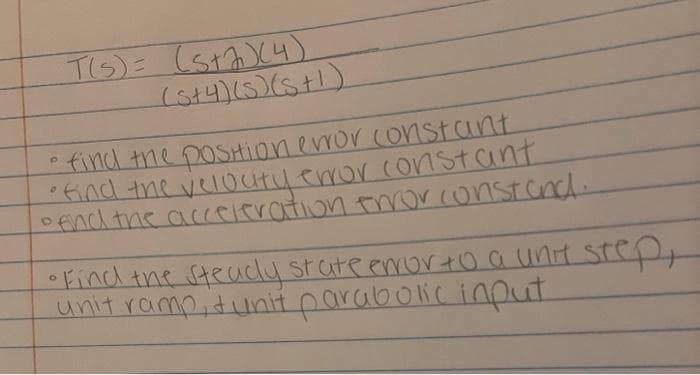 T(s) = (s+2)(4)
(s+4)(s)(s+1)
• find the position error constant
• find the velocity error constant
• find the acceleration error constand.
• Find the steady state error to a unit step,
unit ramp, + unit parabolic input